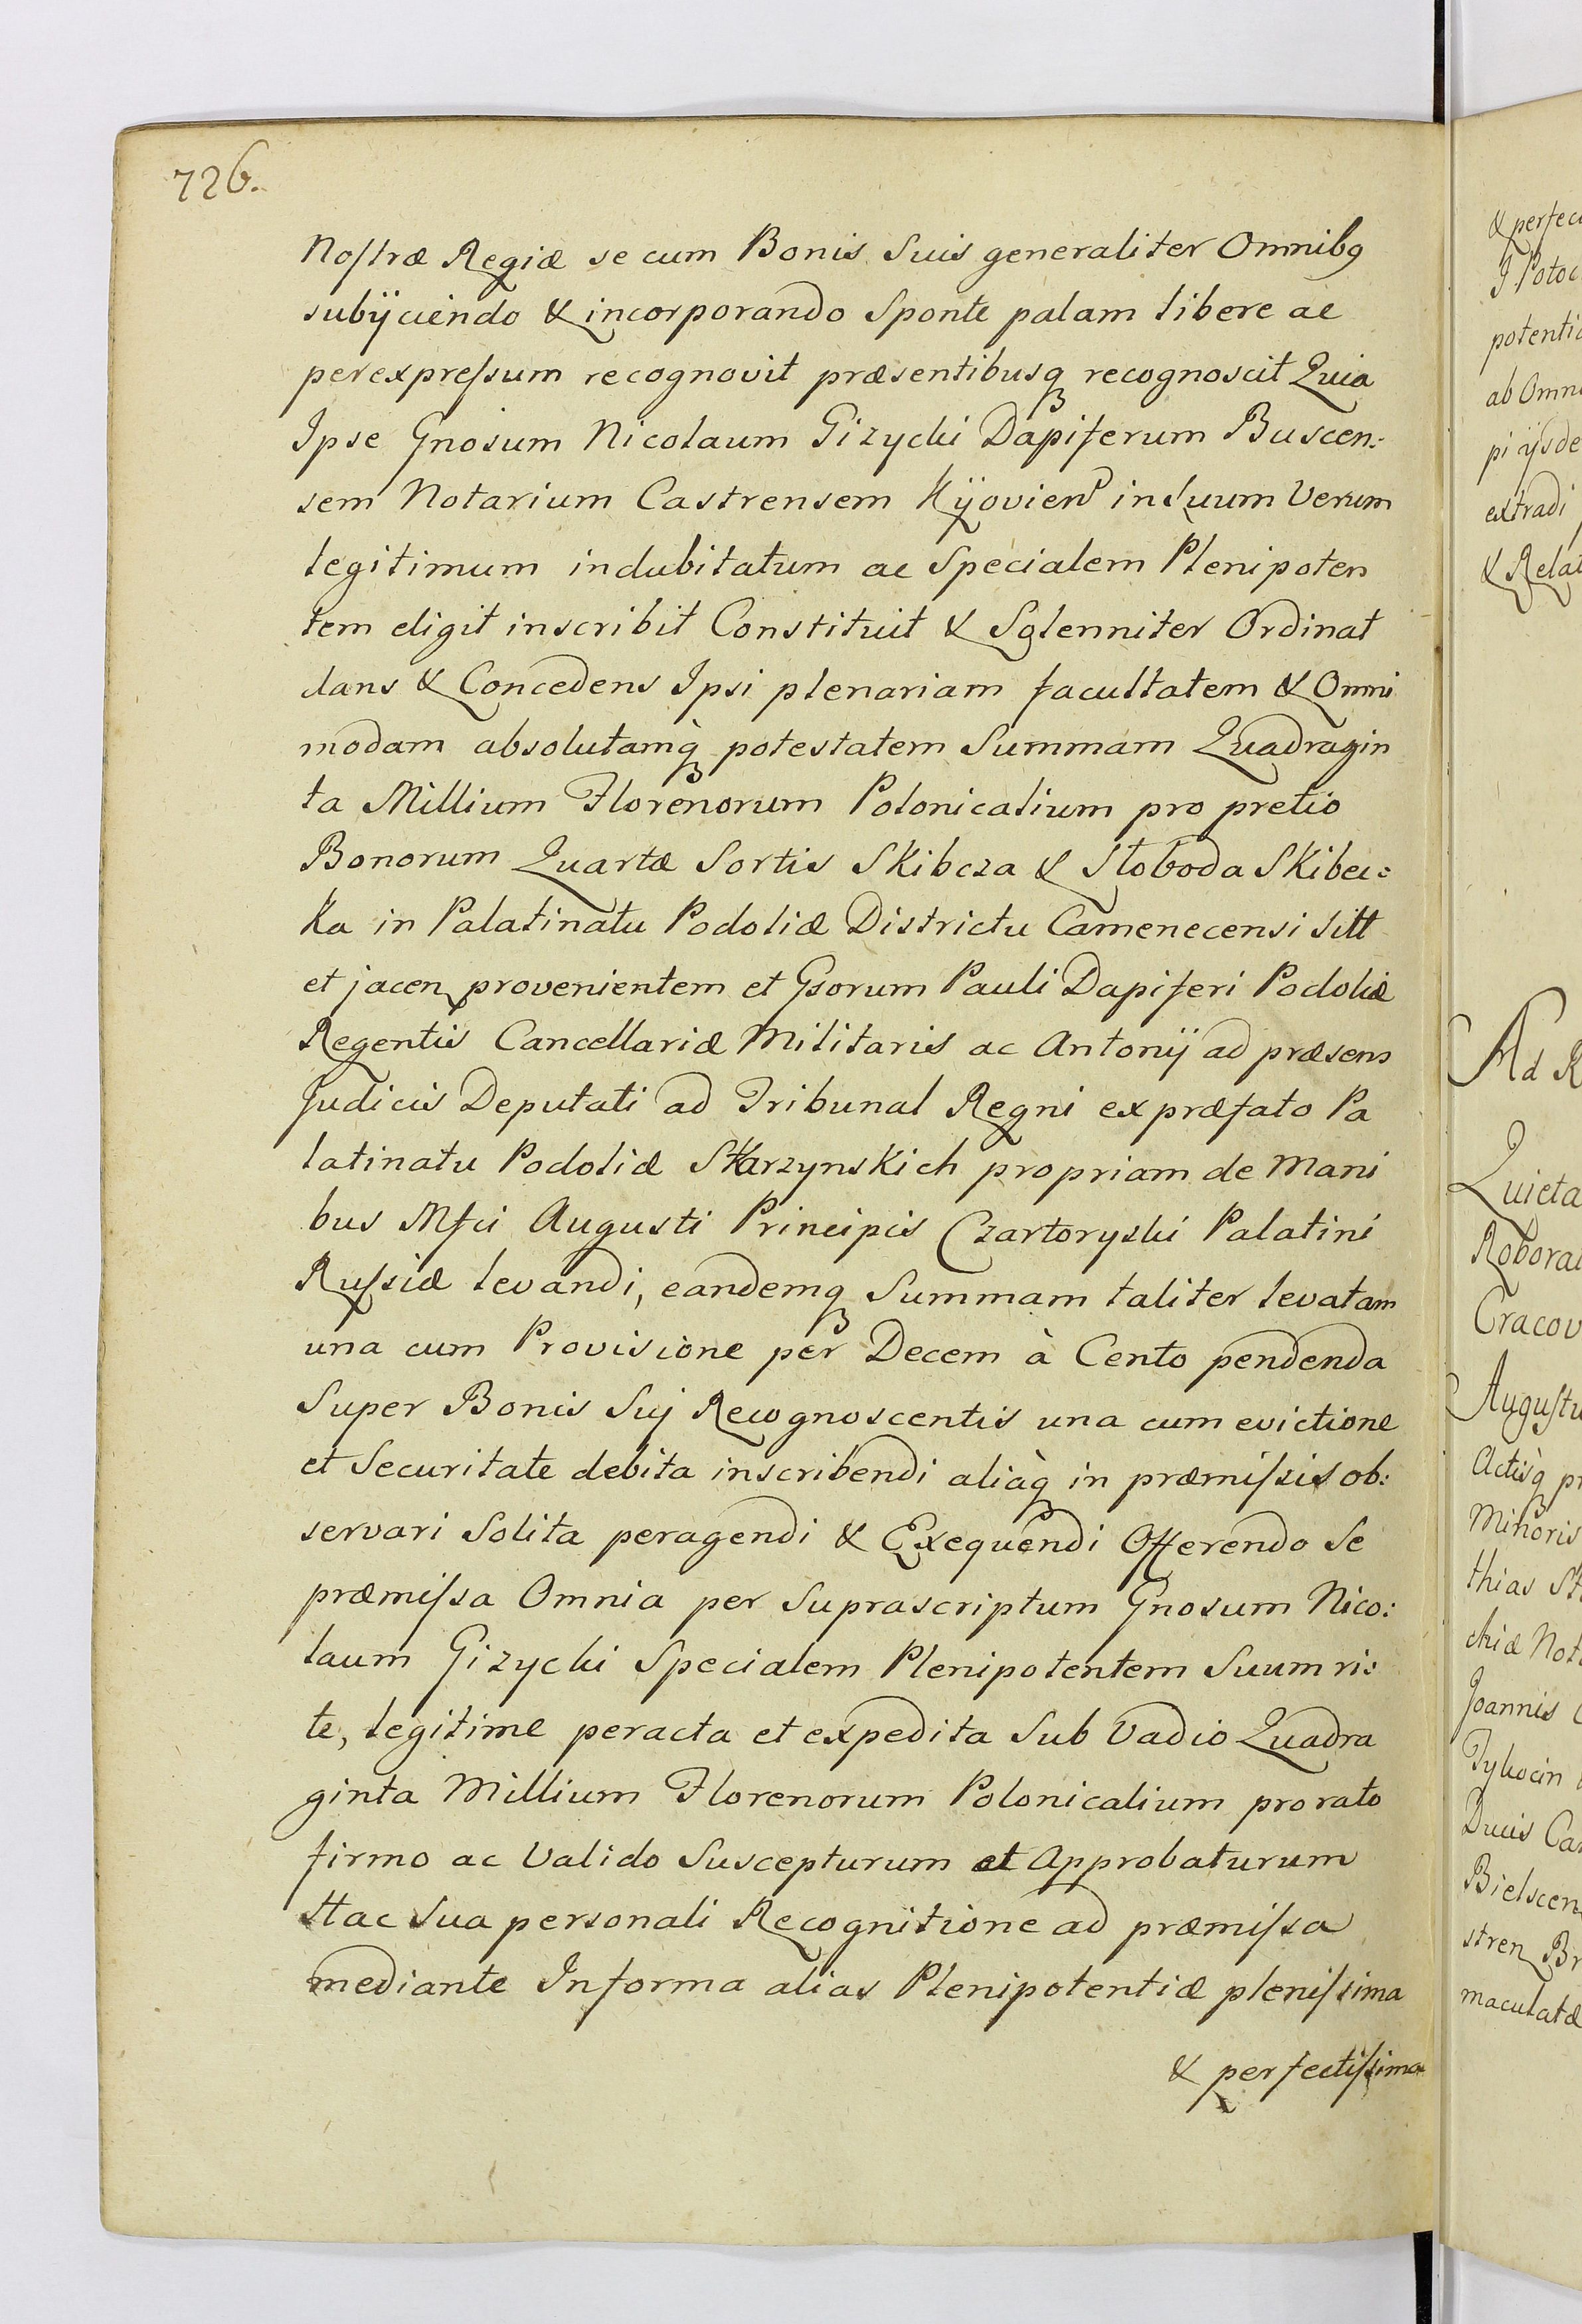 726.
Nostræ Regiæ se cum Bonis Suis generaliter Omnibꝯ
subÿciendo & incorporando Sponte palam libere ac
perexpressum recognovit præsentibusq recognoscit Quia
Ipse Gnosum Nicolaum Gizycki Dapiferum Buscen:
sem Notarium Castrensem Kÿovien in Suum Verum
legitimum indubitatum ac Specialem Plenipoten
tem eligit inscribit Constituit & Solenniter Ordinat
dans & Concedens Ipsi plenariam facultatem & Omni
modam absolutamq̀ potestatem Summam Quadragin
ta Millium Florenorum Polonicalium pro pretio
Bonorum Quartæ Sortis Skibcza & Słoboda Skibec:
ka in Palatinatu Podoliæ Districtu Camenecensi Sitt
et jacen provenientem et Gsorum Pauli Dapiferi Podoliæ
Regentis Cancellariæ Militaris ac Antonÿ ad præsens
Judicis Deputati ad Tribunal Regni ex præfato Pa
latinatu Podoliæ Starzynskich propriam de Mani
bus Mfci Augusti Principis Czartoryski Palatini
Russiæ levandi, eandemq Summam taliter levatam
una cum Provisione per Decem à Cento pendenda
Super Bonis Suj Recognoscentis una cum evictione
et Securitate debita inscribendi aliàq in præmissis ob:
servari Solita peragendi & Exequendi Offerendo Se
præmissa Omnia per Suprascriptum Gnosum Nico:
laum Gizycki Specialem Plenipotentem Suum ri:
te, legitime peracta et expedita Sub Vadio Quadra
ginta Millium Florenorum Polonicalium pro rato
firmo ac Valido Suscepturum et Approbaturum
Hac Sua personali Recognitione ad præmissa
mediante In forma alias Plenipotentiæ plenissima
& perfectissima
& perfec
J Potoc
potentiæ
ab Omni
pi ÿsde
extradi
& Relat
Ad R
Quieta
Roborat
Cracov
Augustu
Actisq̀ pr
Minoris
thias St
chiæ Not
Joannis
Tykocin
Ducis Cas
Bielscen
stren Br
maculatæ